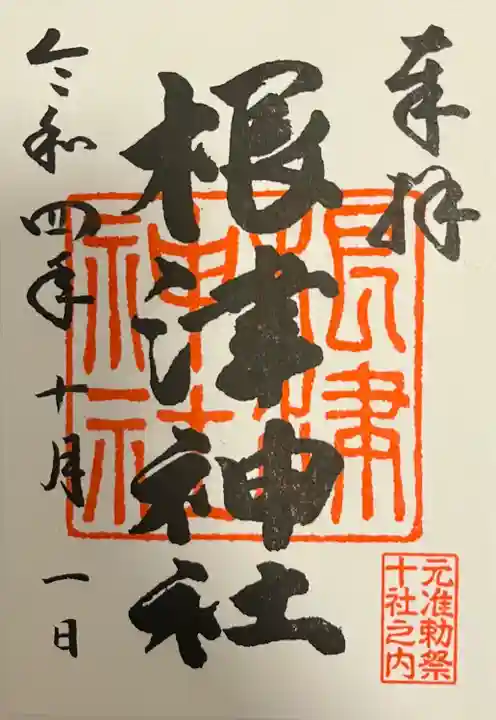 奉拝
根津神社
根津
神社
令和四年十月一日
元准勅祭
十社之内